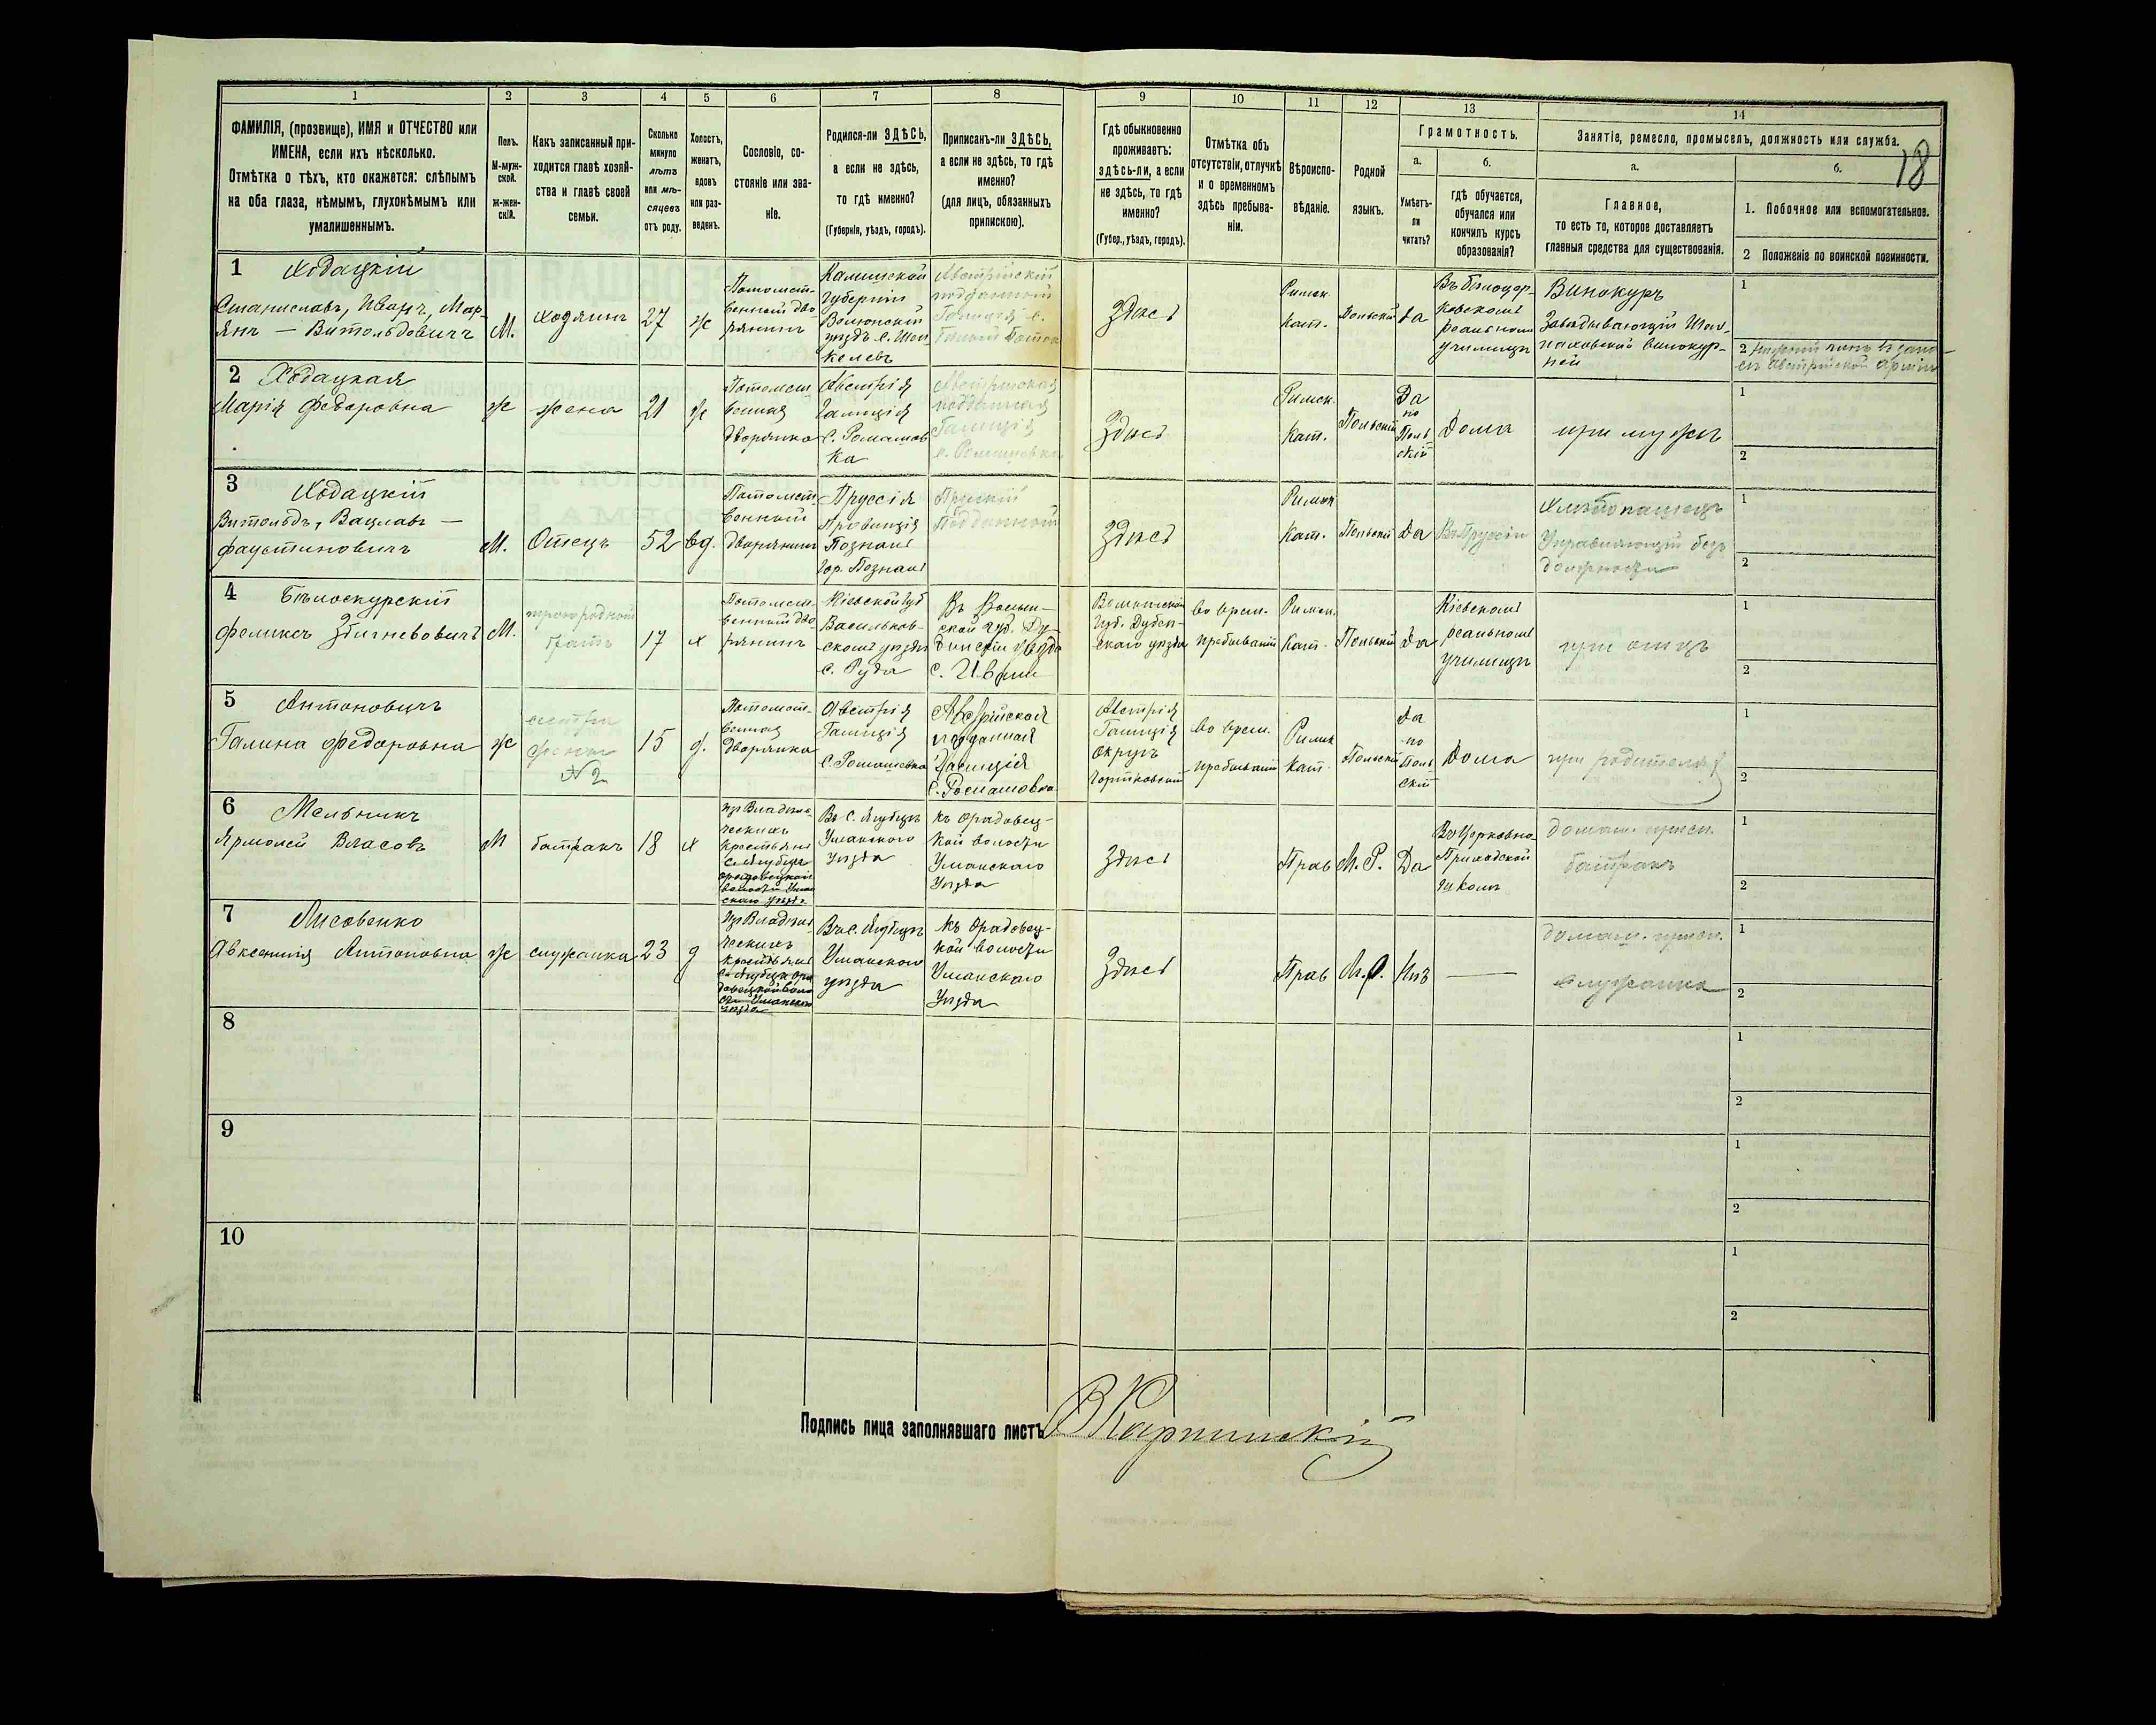 1 2 3 4 5 6 7 8 9 10 11 12 13 14
18
ФАМИЛІЯ, (прозвище), ИМЯ и ОТЧЕСТВО или
ИМЕНА, если ихъ нѣсколько.
Отмѣтка о тѣхъ, кто окажется: слѣпымъ
на оба глаза, нѣмымъ, глухонѣмымъ или
умалишеннымъ.
Полъ.
М-муж-
ской.
ж-жен-
скій.
Какъ записанный при-
ходится главѣ хозяй-
ства и главѣ своей
семьи.
Сколько
минуло
лѣтъ
или мѣ-
сяцевъ
отъ роду.
Холостъ,
женатъ,
вдовъ
или раз-
веденъ.
Сословіе, со-
стояніе или зва-
ніе.
Родился-ли ЗДѢСЬ,
а если не здѣсь,
то гдѣ именно?
(Губернія, уѣздъ, городъ).
Приписанъ-ли ЗДѢСЬ,
а если не здѣсь, то гдѣ
именно?
(для лицъ, обязанныхъ
припискою).
Гдѣ обыкновенно
проживаетъ:
здѣсь-ли, а если
не здѣсь, то гдѣ
именно?
(Губер., уѣздъ, городъ).
Отмѣтка объ
отсутствіи, отлучкѣ
и о временномъ
здѣсь пребыва-
ніи.
Вѣроиспо-
вѣданіе.
Родной
языкъ.
Грамотность.
а.
Умѣетъ-
ли
читать?
б.
гдѣ обучается,
обучался или
кончилъ курсъ
образованія?
Занятіе, ремесло, промыселъ, должность или служба.
а.
Главное,
то есть то, которое доставляетъ
главныя средства для существованія.
б.
1. Побочное или вспомогательное.
2 Положеніе по воинской повинности.
1 Ходацкій
Станиславъ, Иванъ, Мар-
янъ — Витольдовичъ
М.
хозяинъ
27
ж
Потомст-
венный дво
рянинъ
Калишской
Губерніи
Велюнскій
уѣздъ с.
Австрійскій
подданный
Галиція с.
здѣсь
Римск.
Кат.
Польскій
да
Въ Бѣлоцер-
ковскомъ
реальномъ
училищѣ
Винокуръ
Завѣдывающій
винокур-
ней
1
2
Австрійской арміи
2 Ходацкая
Марія Федоровна
ж
жена
21
ж
Потомст-
венная
дворянка
Австрія
Галиція
с. Ромашов
ка
Австрійская
подданная
Галиція
с. Ромашовка
здѣсь
Римск.
Кат.
Польскій
Да
по
Поль
скій
Дома
при мужѣ
1
2
3 Ходацкій
Витольдъ, Вацлавъ —
Фаустиновичъ
М.
Отецъ
52
вд.
Потомст-
венный
дворянинъ
Пруссія
Провинція
Познань
гор. Познань
Прускій
Подданный
здѣсь
Римск
Кат.
Польскій
Да
Въ Пруссіи
Хлѣбопашецъ
Управляющій безъ
должности
1
2
4 Бѣлоскурскій
Феликсъ Збигневовичъ
М.
троюродный
братъ
17
х
Потомст-
венный дво-
рянинъ
Кіевской губ
Васильков-
скомъ уѣздѣ
с. Руда
Въ Волын-
ской губ. Ду-
бинскій уѣздъ
Волынской
Губ. Дубен-
скаго уѣзда
во врем.
пребываніи
Римск.
Кат.
Польскій
Да
Кіевскомъ
реальномъ
училищѣ
при отцѣ
1
2
5 Антоновичъ
Галина Федоровна
ж
сестра
жены
№ 2
15
д.
Потомст-
венная
дворянка
Австрія
Галиція
с. Ромашевка
Австрійская
подданная
Галиція
с. Ромашовка
Австрія
Галиція
округъ
Чортковскій
во врем.
пребываніи
Римск
Кат.
Польскій
да
по
Поль
скій
Дома
при родителяхъ
1
2
6 Мельникъ
Ярмолей Власовъ
М
батракъ
18
х
изъ Владѣль-
ческихъ
крестьянъ
Орадовецкой
волости Уман
скаго уѣзд.
Въ с. Яубецъ
Уманского
уѣзда
къ Орадовец-
кой волости
Уманскаго
Уѣзда
здѣсь
Прав
М. Р.
Да
Въ Церковно-
Приходской
школѣ
домаш. присл.
батракъ
1
2
7 Лисовенко
Авксентія Антоновна
ж
служанка
23
д
изъ Владѣль
ческихъ
крестьянъ
Въ с. Яубецъ
Уманского
уѣзда
къ Орадовец-
кой волости
Уманскаго
Уѣзда
здѣсь
Прав
М. Р.
Нѣтъ
—
домаш. присл.
служанка
1
2
8
1
2
9
1
2
10
1
2
Подпись лица заполнявшаго листъ
В Карпинскій